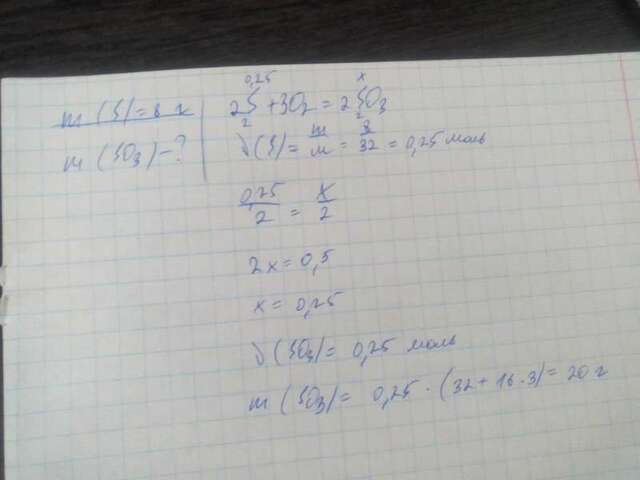 m (S) = 8 г
m (SO3) - ?
0,25 x
2S + 3O2 = 2SO3
2 2
ν(S) = m/M = 8/32 = 0,25 моль
0,25/2 = x/2
2x = 0,5
x = 0,25
ν(SO3) = 0,25 моль
m (SO3) = 0,25 · (32 + 16 · 3) = 20 г